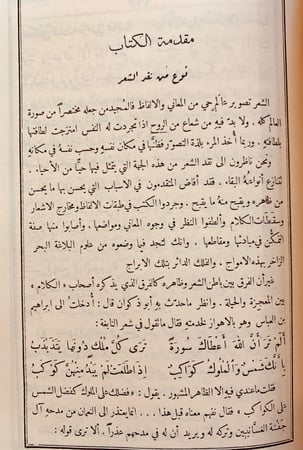 مقدمة الكتاب
نوع من نقد الشعر
الشعر تصوير عالم حي من المعاني والالفاظ فالمجيد من جعله مختصراً من صورة
العالم كله . ولا بد فيه من شعاع من الروح اذا تجردت له النفس امتزجت لطافتها
بلطافته . وربما أخذ المرء بلذة التصور فظنّها في مكان نفسه وحسب نفسه في مكانه
ونحن ناظرون الى نقد الشعر من هذه الجهة التي يتمثل فيها حياً من الأحياء .
تنازع أنواعه البقاء . فقد أفاض المتقدمون في الاسباب التي يحسن بها ما يحسن
من ظاهره ويقبح منه ما يقبح . وجردوا الكتب في طبقات الالفاظ ومخارج الاشعار
وسقطات الكلام وألطفوا النظر في وجوه المعاني ومواضعها . وأصابوا منها صفة
التمكن في مبادئها ومقاطعها . وانك لتجد فيما وضعوه من علوم البلاغة البحر
الزاخر بهذه الامواج . والفلك الدائر بتلك الابراج
غير أن الفرق بين باطن الشعر وظاهره كالفرق الذي يذكره أصحاب « الكلام »
بين المعجزة والحيلة . وانظر ما حدّث به أبو ذكوان قال : أُدخلتُ الى ابراهيم
بن العباس وهو بالاهواز لخدمته فقال ما تقول في شعر النابغة :
أَلم تَرَ أنَّ اللهَ أَعطاكَ سُورةً تَرَى كُلَّ مَلْكٍ دونها يَتَذَبْذَب
بأنَّكَ شمسٌ والملوكَ كواكبٌ إذا طلعت لم يبدُ منهنَّ كوكب
فقلت ما عندي فيه الا الظاهر المشهور . يقول : « فضلك على الملوك كفضل الشمس
على الكواكب » . فقال نفهم معناه قبل هذا . . . انما يعتذر الى النعمان من مدحه آل
جَفنة الغسانيين وتركه له ويريد أن له في مدحهم عذراً . ألا ترى قوله :